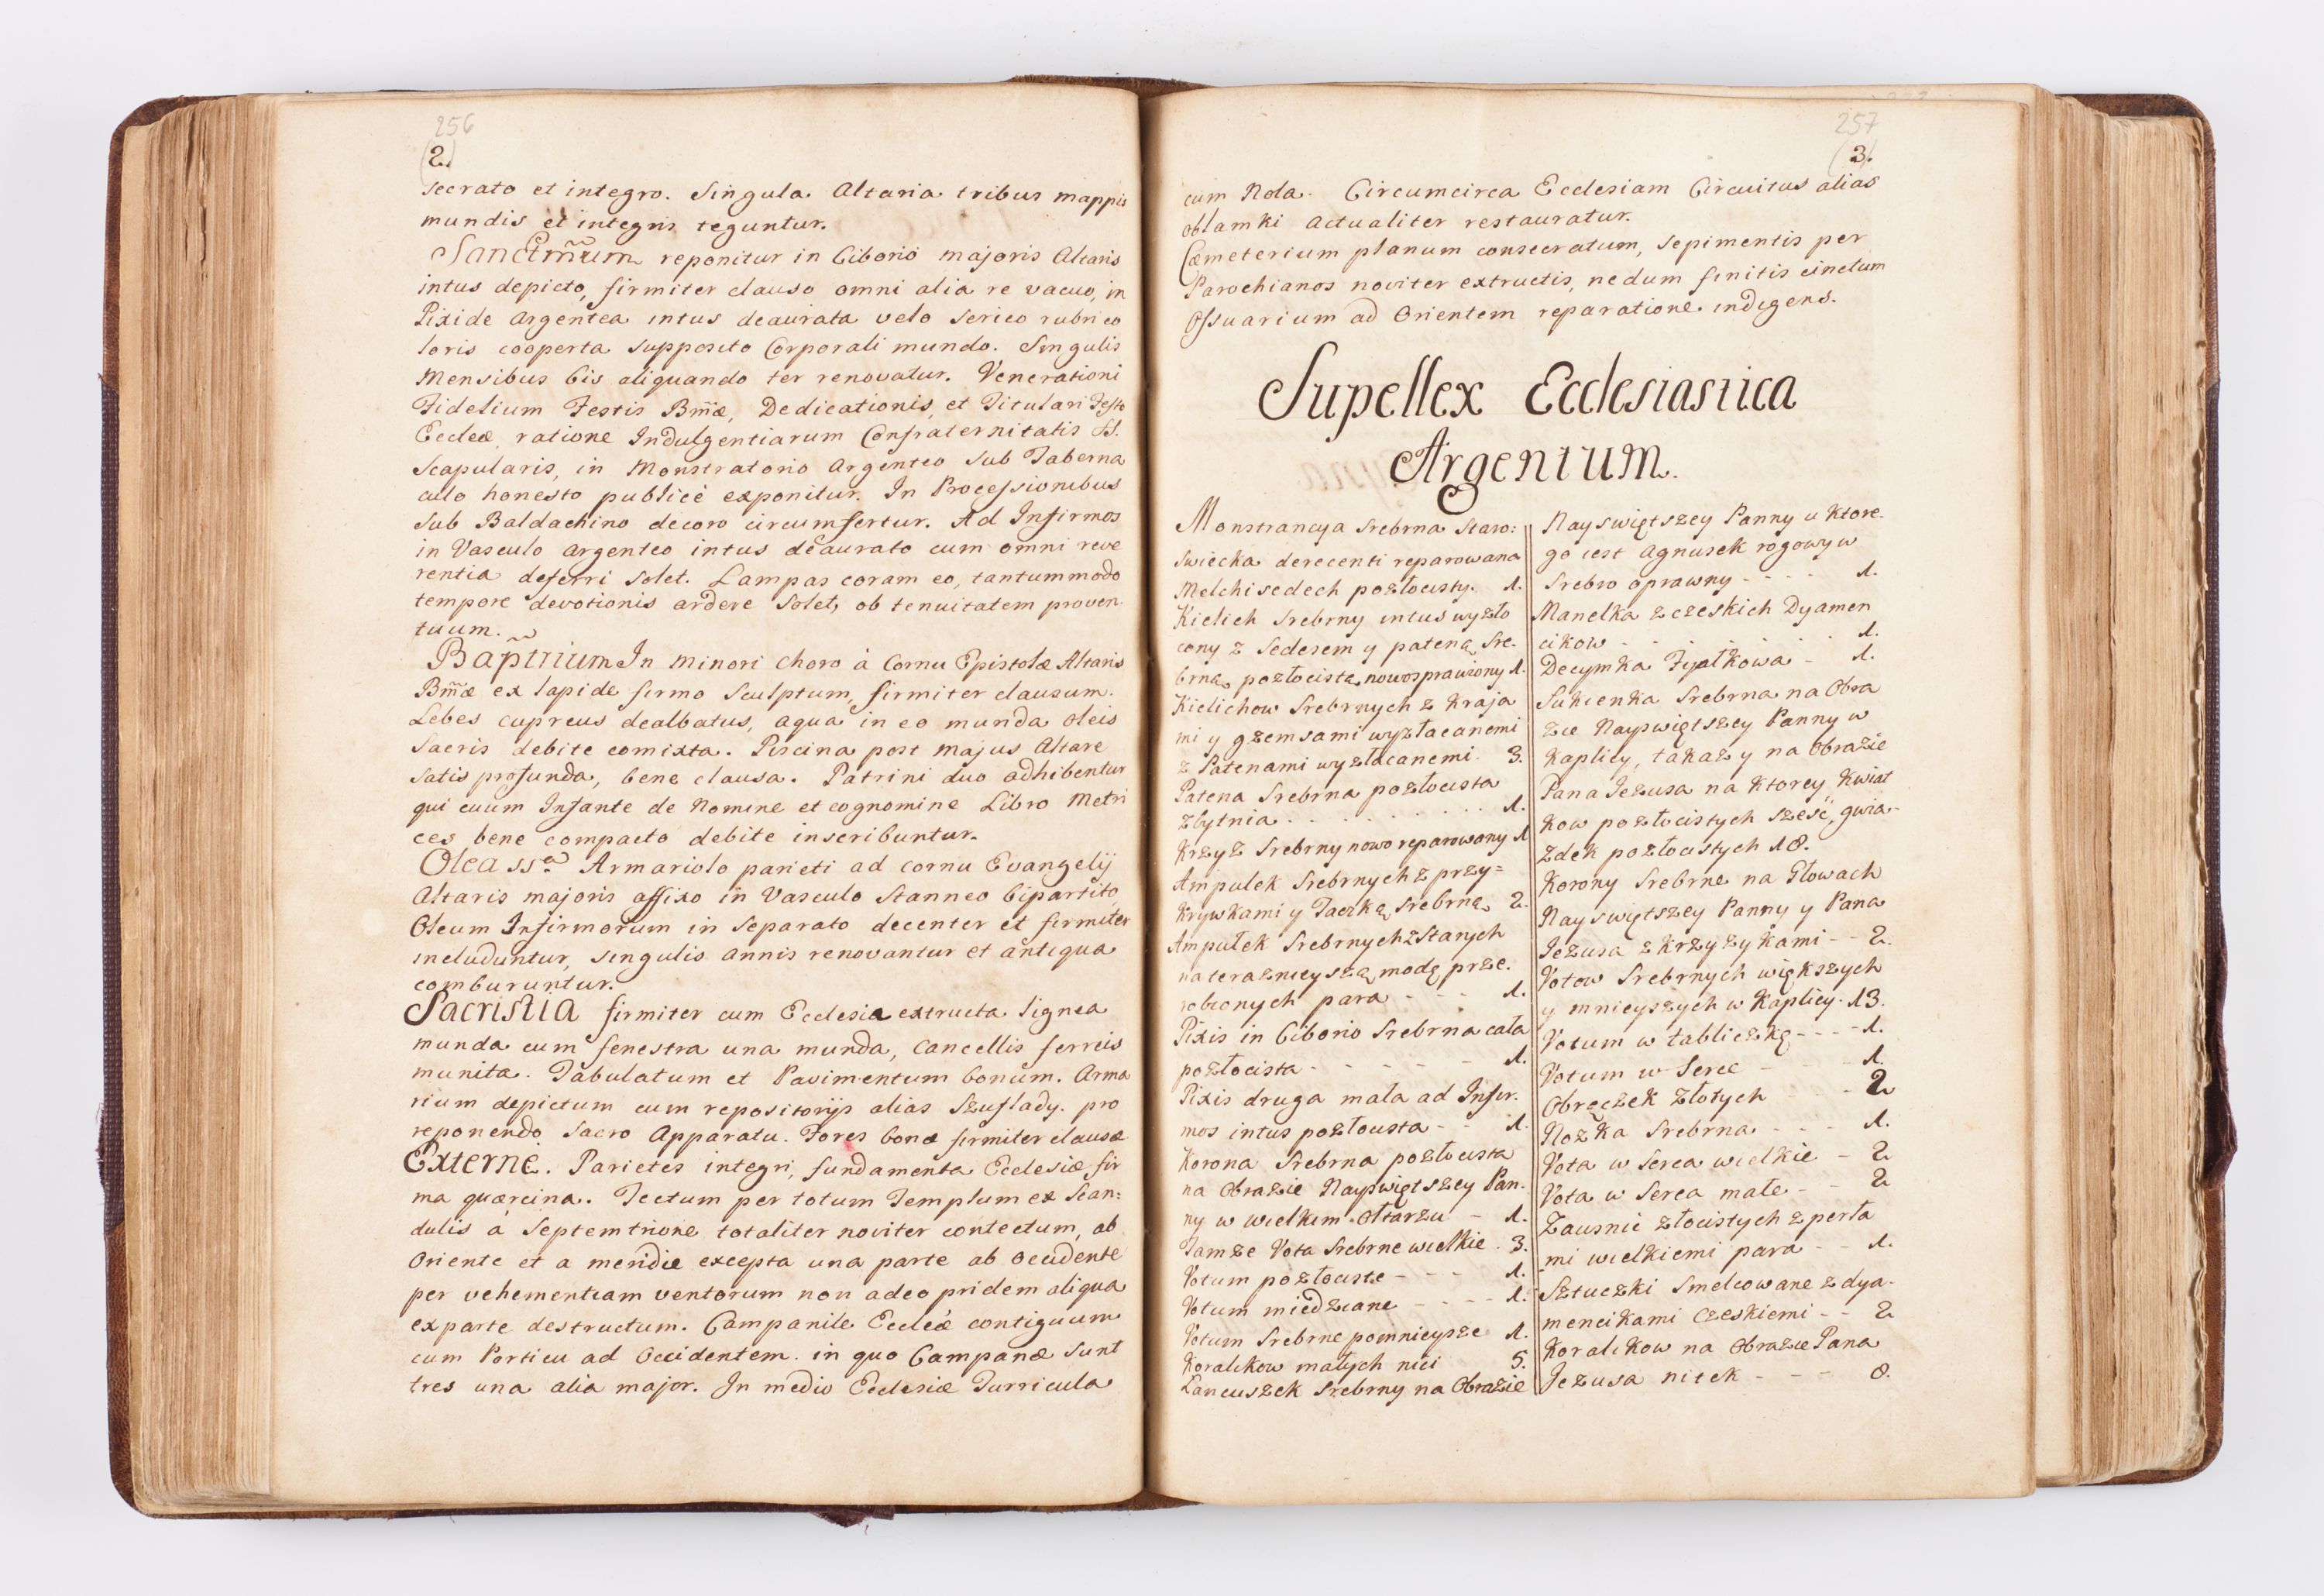 256
(2.)
secrato et integro. Singula Altaria tribus mappis
mundis et integris teguntur.
Sanctm̃um reponitur in Ciborio majoris Altaris
intus depicto, firmiter clauso omni alia re vacuo, in
Pixide Argentea intus deaurata velo serico rubri co
loris cooperta supposito Corporali mundo. Singulis
Mensibus bis aliquando ter renovatur. Venerationi
Fidelium Festis Bm̃æ, Dedicationis, et Titulari Festo
Eccleæ ratione Indulgentiarum Confraternitatis SS.
Scapularis, in Monstratorio Argenteo sub Taberna
culo honesto publicè exponitur. In Processionibus
sub Baldachino decoro circumfertur. Ad Infirmos
in Vasculo argenteo intus deaurato cum omni reve
rentia deferri solet. Lampas coram eo, tantummodo
tempore devotionis ardere solet, ob tenuitatem proven
tuum.
Baptm̃ium In minori choro à Cornu Epistolæ Altaris
Bm̃æ ex lapide firmo sculptum, firmiter clausum.
Lebes cupreus dealbatus, aqua in eo munda oleis
sacris debite comixta. Piscina post majus Altare
satis profunda, bene clausa. Patrini duo adhibentur
qui cuum Infante de Nomine et cognomine Libro Metri
ces bene compacto debite inscribuntur.
Olea SSa Armariolo parieti ad cornu Evangelij
Altaris majoris affixo in Vasculo Stanneo bipartito,
Oleum Infirmorum in separato decenter et firmiter
includuntur, singulis annis renovantur et antiqua
comburuntur.
Sacristia firmiter cum Ecclesia extructa lignea
munda cum fenestra una munda, Cancellis ferreis
munita. Tabulatum et Pavimentum bonum. Arma
rium depictum cum repositorijs alias Szuflady. pro
reponendo Sacro Apparatu. Fores bonæ firmiter clausæ
Externe. Parietes integri, fundamenta Ecclesiæ fir
ma quærcina. Tectum per totum Templum ex Scan:
dulis à Septemtrione totaliter noviter contectum, ab
Oriente et a meridie excepta una parte ab occidente
per vehementiam ventorum non adeo pridem aliqua
ex parte destructum. Campanile Eccleæ contiguum
cum Porticu ad Occidentem. in quo Campanæ sunt
tres una alia major. In medio Ecclesiæ Turricula
257
(3.)
cum Nola. Circumcirca Ecclesiam Circuitus alias
oblamki actualiter restauratur.
Cæmeterium planum consecratum, sepimentis per
Parochianos noviter extructis, nedum finitis cinctum
Ossuarium ad Orientem reparatione indigens.
Supellex Ecclesiastica
Argentum.
Monstrancya Srebrna Staro:
swiecka derecenti reparowana
Melchisedech pozłocisty. 1.
Kielich Srebrny intus wyzło
cony z Sedesem y pateną Sre.
brną, pozłocistą, nowosprawiony 1.
Kielichow Srebrnych z Kraja
mi y gzemsami wyzłacanemi
z Patenami wyzłacanemi. 3.
Patena Srebrna pozłocista
zbytnia . . . . . . . . 1.
Krzyż Srebrny nowo reparowany 1
Ampulek Srebrnych z przy=
krywkami y Taczką srebrną, 2.
Ampułek Srebrnych z Starych
na teraznieyszą modę prze.
robionych para - - - 1.
Pixis in Ciborio Srebrna cała
pozłocista - - - - - 1.
Pixis druga mała ad Infir.
mos intus pozłocista - - 1.
Korona Srebrna pozłocista
na Obrazie Nayswiętszey Pan.
ny w wielkim Ołtarzu - 1.
Tamze Vota Srebrne wielkie. 3.
Votum pozłociste - - - 1.
Votum miedziane - - - - 1.
Votum Srebrne pomnieysze 1.
Koralikow małych nici 5.
Lancuszek Srebrny na Obrazie
Nayswiętszey Panny u Ktore.
go iest Agnusek rogowy w
Srebro oprawny - - - - 1.
Manelka z czeskich Dyamen
cikow - - - - - - 1.
Decymka Fyałkowa - 1.
Sukienka Srebrna na Obra
zie Nayswiętszey Panny w
Kaplicy, takaż y na Obrazie
Pana Jezusa na Ktorey Kwiat
kow pozłocistych sześć, gwia-
zdek pozłocistych 18.
Korony Srebrne na Głowach
Nayswiętszey Panny y Pana
Jezusa z Krzyzykami - - 2.
Votow Srebrnych większych
y mnieyszych w Kaplicy. 13.
Votum w tabliczkę - - - - 1.
Votum w Serce - - - 1.
Obrączek Złotych - - - 2
Nozka Srebrna - - - 1.
Vota w Serca wielkie - 2
Vota w Serca małe - - 2
Zausnic złocistych z perła
mi wielkiemi para - - 1.
Sztuczki Smelcowane z dya-
mencikami Czeskiemi - - 2
Koralikow na Obrazie Pana
Jezusa nitek - - - 8.